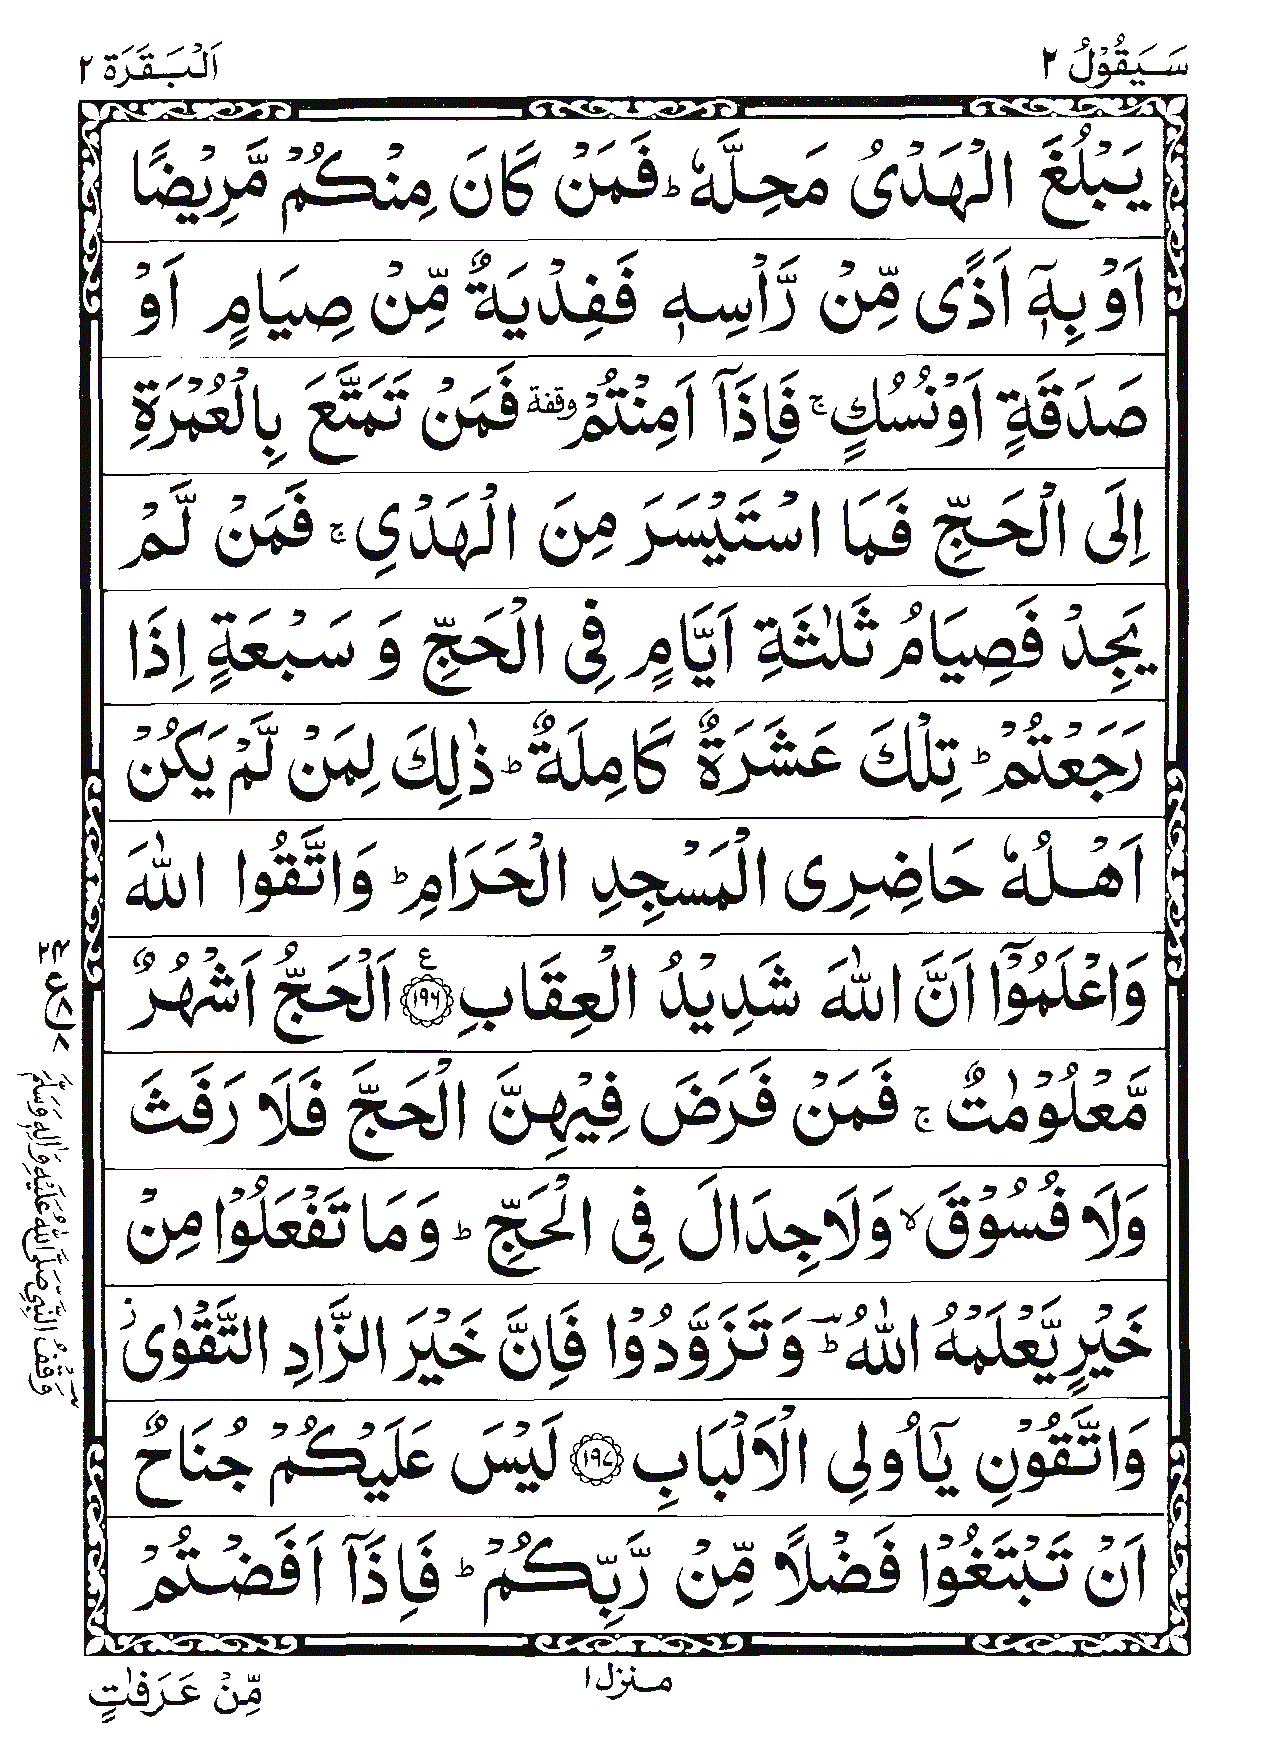 سَيَقُوْلُ ٢
اَلْبَقَرَة ٢
يَبْلُغَ الْهَدْىُ مَحِلَّهٗ ؕ فَمَنْ كَانَ مِنْكُمْ مَّرِيْضًا
اَوْ بِهٖۤ اَذًى مِّنْ رَّاْسِهٖ فَفِدْيَةٌ مِّنْ صِيَامٍ اَوْ
صَدَقَةٍ اَوْ نُسُكٍ ۚ فَاِذَاۤ اَمِنْتُمْ وقفة فَمَنْ تَمَتَّعَ بِالْعُمْرَةِ
اِلَى الْحَجِّ فَمَا اسْتَيْسَرَ مِنَ الْهَدْىِ ۚ فَمَنْ لَّمْ
يَجِدْ فَصِيَامُ ثَلٰثَةِ اَيَّامٍ فِى الْحَجِّ وَ سَبْعَةٍ اِذَا
رَجَعْتُمْ ؕ تِلْكَ عَشَرَةٌ كَامِلَةٌ ؕ ذٰلِكَ لِمَنْ لَّمْ يَكُنْ
اَهْلُهٗ حَاضِرِى الْمَسْجِدِ الْحَرَامِ ؕ وَاتَّقُوا اللّٰهَ
وَاعْلَمُوْۤا اَنَّ اللّٰهَ شَدِيْدُ الْعِقَابِ ﴿۱۹۶﴾ ع اَلْحَجُّ اَشْهُرٌ
مَّعْلُوْمٰتٌ ۚ فَمَنْ فَرَضَ فِيْهِنَّ الْحَجَّ فَلَا رَفَثَ
وَلَا فُسُوْقَ ۙ وَلَا جِدَالَ فِى الْحَجِّ ؕ وَمَا تَفْعَلُوْا مِنْ
خَيْرٍ يَّعْلَمْهُ اللّٰهُ ؕ وَتَزَوَّدُوْا فَاِنَّ خَيْرَ الزَّادِ التَّقْوٰى ز
وَاتَّقُوْنِ يٰۤاُولِى الْاَلْبَابِ ﴿۱۹۷﴾ لَيْسَ عَلَيْكُمْ جُنَاحٌ
اَنْ تَبْتَغُوْا فَضْلًا مِّنْ رَّبِّكُمْ ؕ فَاِذَاۤ اَفَضْتُمْ
منزل ١
مِّنْ عَرَفٰتٍ
وَقْفُ النَّبِيِّ صَلَّى اللّٰهُ عَلَيْهِ وَاٰلِهٖ وَسَلَّمَ